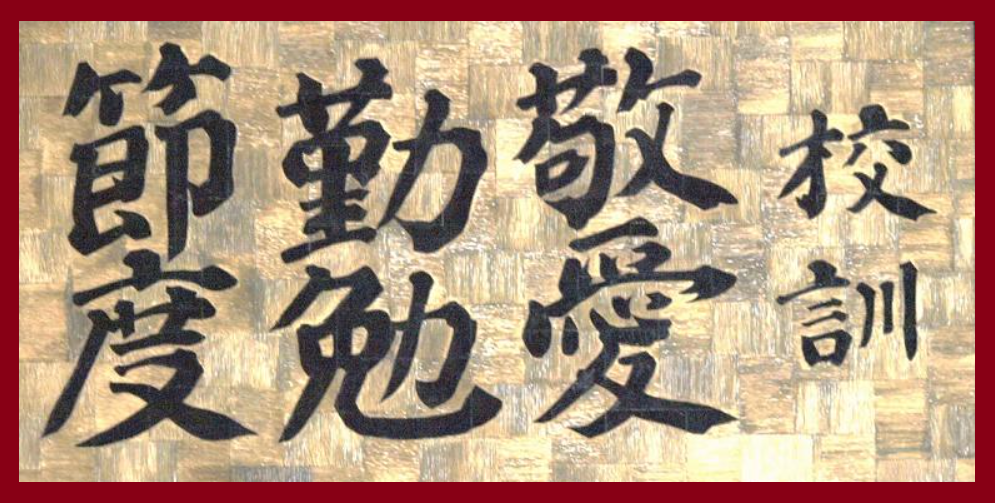 校訓
敬愛
勤勉
節度